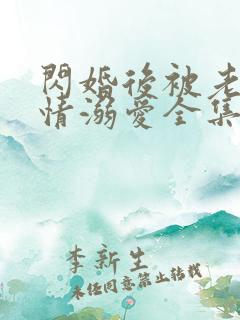 閃婚後被老
情溺愛全集
李新生
未任同意禁止转载